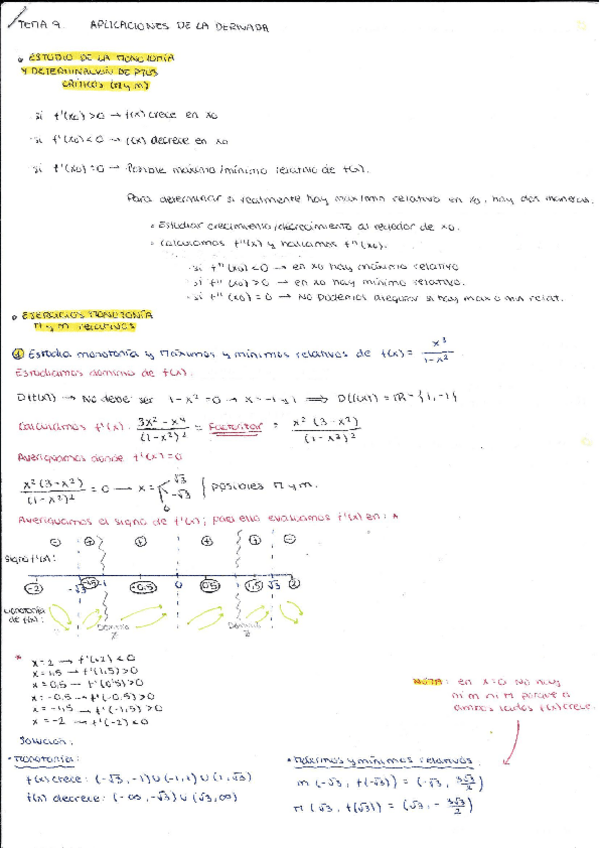 TEMA 9. APLICACIONES DE LA DERIVADA
• ESTUDIO DE LA MONOTONÍA
Y DETERMINACIÓN DE PTOS
CRÍTICOS (M y m)
si f'(x0) > 0 → f(x) crece en x0
si f'(x0) < 0 → f(x) decrece en x0
si f'(x0) = 0 → Posible máximo/mínimo relativo de f(x).
Para determinar si realmente hay max/min relativo en x0, hay dos maneras.
• Estudiar crecimiento/decrecimiento alrededor de x0.
• Calculamos f''(x) y hallamos f''(x0).
· si f''(x0) < 0 → en x0 hay máximo relativo
· si f''(x0) > 0 → en x0 hay mínimo relativo.
· si f''(x0) = 0 → No podemos asegurar si hay max o min relat.
• EJERCICIOS MONOTONÍA
M y m relativos
① Estudia monotonía y Máximos y mínimos relativos de f(x) = x³ / 1-x²
Estudiamos dominio de f(x).
D(f(x)) → No debe ser 1-x² = 0 → x = -1 y 1 ⟹ D(f(x)) = ℝ - {1, -1}
Calculamos f'(x): 3x² - x⁴ / (1-x²)² = Factorizar = x² (3-x²) / (1-x²)²
Averiguamos donde f'(x) = 0
x² (3-x²) / (1-x²)² = 0 → x = √3 -√3 0 } posibles M y m.
Averiguamos el signo de f'(x); para ello evaluamos f'(x) en: *
⊖ ⊕ ⊕ ⊕ ⊕ ⊖
Signo f'(x):
-2 -√3 -1.5 -0.5 0 0.5 1.5 √3 2
Monotonía de f(x):
Dominio Dominio
*
x = 2 → f'(2) < 0
x = 1.5 → f'(1.5) > 0
x = 0.5 → f'(0.5) > 0
x = -0.5 → f'(-0.5) > 0
x = -1.5 → f'(-1.5) > 0
x = -2 → f'(-2) < 0
NOTA: en x=0 No hay
ni m ni M porque a
ambos lados f(x) crece.
Solución:
• Monotonía:
f(x) crece: (-√3, -1) ∪ (-1, 1) ∪ (1, √3)
f(x) decrece: (-∞, -√3) ∪ (√3, ∞)
• Máximos y mínimos relativos.
m (-√3, f(-√3)) = (-√3, 3√3/2)
M (√3, f(√3)) = (√3, -3√3/2)